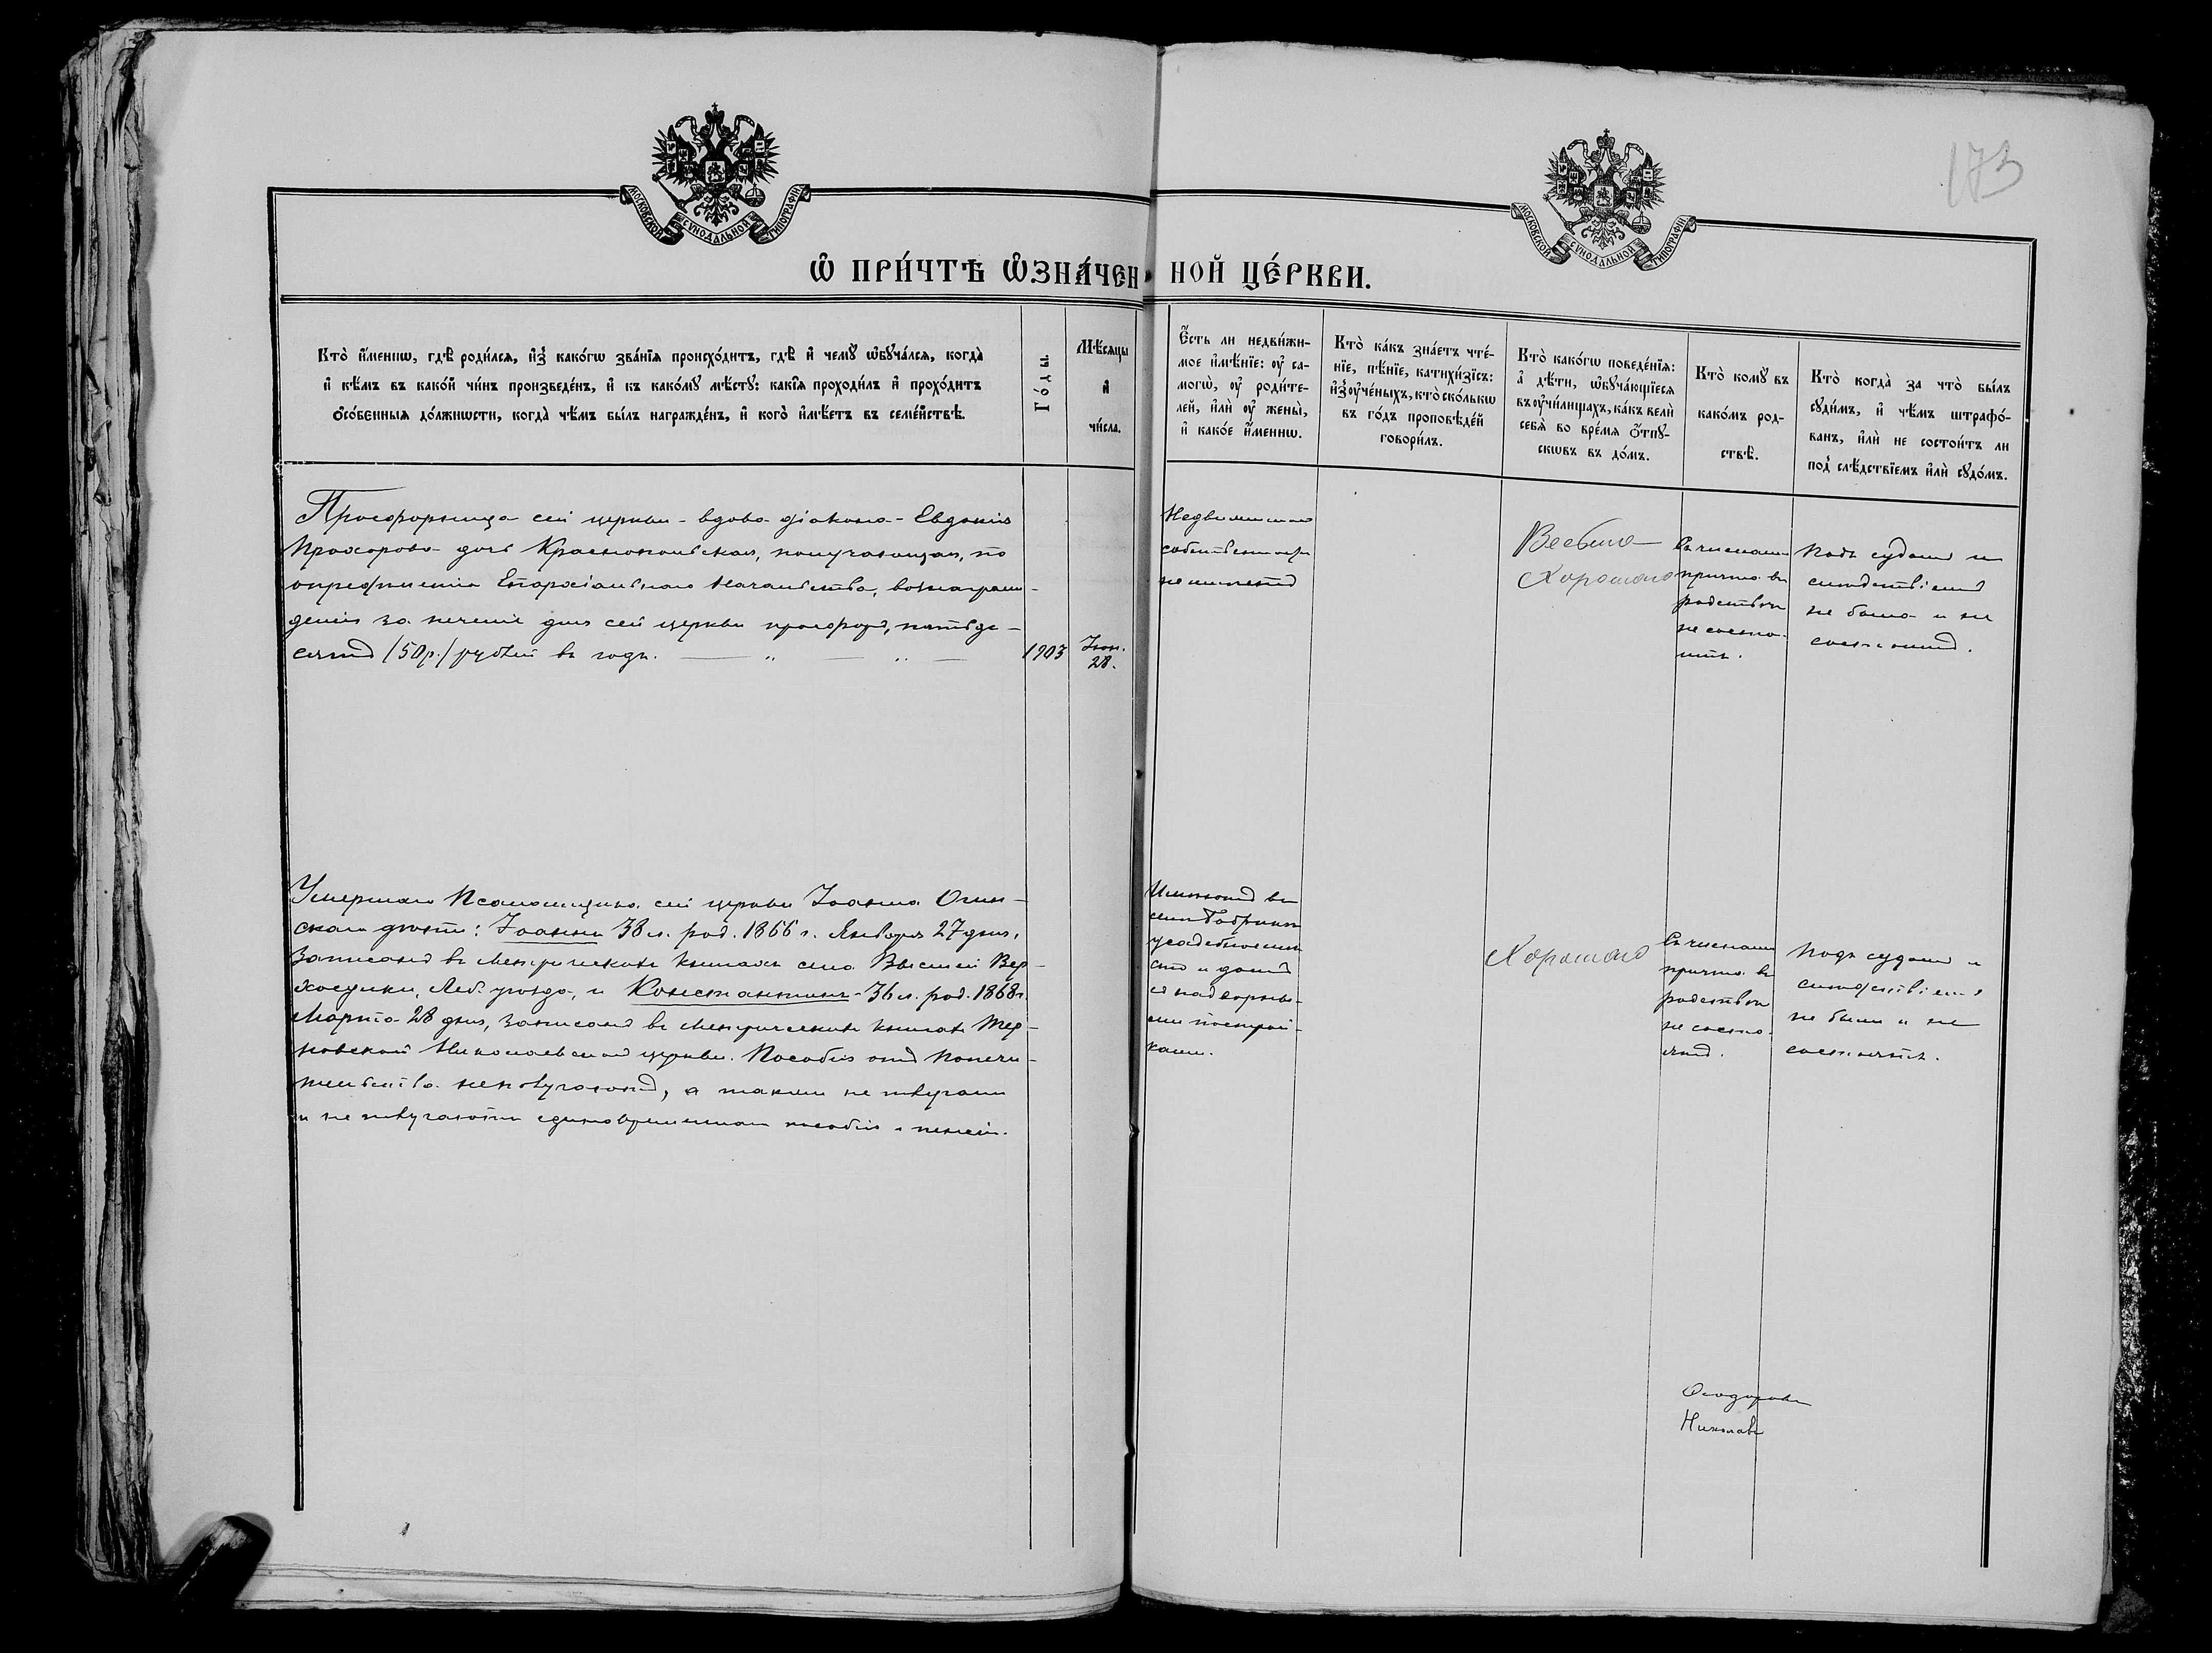 173
МОСКОВСКОЙ СѴНОДАЛЬНОЙ ТИПОГРАФІИ
МОСКОВСКОЙ СѴНОДАЛЬНОЙ ТИПОГРАФІИ
Ѡ҆ ПРИ́ЧТѢ Ѡ҆ЗНА́ЧЕН НОЙ ЦЕ́РКВИ.
Кто̀ и҆́меннѡ, гдѣ̀ роди́лся, и҆з̾ како́гѡ зва́нїя происхо́дитъ, гдѣ̀ и҆ чемꙋ̀ ѡ҆бꙋча́лся, когда̀
и҆ кѣ́мъ въ како́й чи́нъ произведе́нъ, и҆ къ како́мꙋ мѣ́стꙋ: какі̑я проходи́лъ и҆ прохо́дитъ
ѻ҆со́бенныя до́лжнѡсти, когда̀ чѣ́мъ бы́лъ награжде́нъ, и҆ кого̀ и҆мѣ́етъ въ семе́йствѣ.
Го́ды.
Мѣ́сяцы
и҆
чи́сла.
Є҆́сть ли недви́жи-
мое и҆мѣ́нїе: ᲂу҆ са-
могѡ̀, ᲂу҆ роди́те-
лей, и҆лѝ ᲂу҆ жены̀,
и҆ како́е и҆́меннѡ.
Кто̀ ка́къ зна́етъ чте́-
нїе, пѣ́нїе, катихи́зїсъ:
и҆з̾ ᲂу҆че́ныхъ, кто̀ ско́лькѡ
въ го́дъ проповѣ́дей
говори́лъ.
Кто̀ како́гѡ поведе́нїя:
а҆ дѣ́ти, ѡ҆бꙋча́ющїеся
въ ᲂу҆чи́лищахъ, ка́къ велѝ
себя̀ во вре́мя ѿпꙋ-
скѡвъ въ до́мъ.
Кто̀ комꙋ̀ въ
како́мъ род-
ствѣ̀.
Кто̀ когда̀ за что̀ бы́лъ
сꙋди́мъ, и҆ чѣ́мъ штрафо́-
ванъ, и҆лѝ не состои́тъ ли
под̾ слѣ́дствїемъ и҆лѝ сꙋдо́мъ.
Просфорница сей церкви - вдова діакона - Евдокія
Прохорова дочь Краснопольская, получающая, по
опредѣленію Епархіальнаго Начальства, вознаграж-
деніе за печеніе для сей церкви просфоръ, пятьде-
сятъ /50 р./ рублей въ годъ. — „ — „ —
1903
Іюн.
28.
Недвижимой
собственности
не имѣетъ
Весьма
хорошаго
Съ членами
причта въ
родствѣ
не состо-
итъ.
Подъ судомъ и
слѣдствіемъ
не была и не
состоитъ.
Умершаго Псаломщика сей церкви Іоанна Огин-
скаго дѣти: Іоаннъ 38 л. род. 1866 г. Января 27 дня,
записанъ въ Метрическихъ книгахъ села Высшей Вер-
хосулки, Леб. уѣзда, и Константинъ - 36 л. род. 1868 г.
Марта 28 дня, записанъ въ Метрическихъ книгахъ Тер-
новской Николаевской церкви. Пособія отъ Попечи-
тельства не получаютъ, а также не получали
и не получаютъ единовременнаго пособія и пенсій.
Имѣютъ въ
усадебное мѣ-
сто и домъ
съ надворны-
ми построй-
ками.
Хорошаго
Съ членами
причта въ
родствѣ
не состо-
ятъ.
Подъ судомъ и
слѣдствіемъ
не были и не
состоятъ.